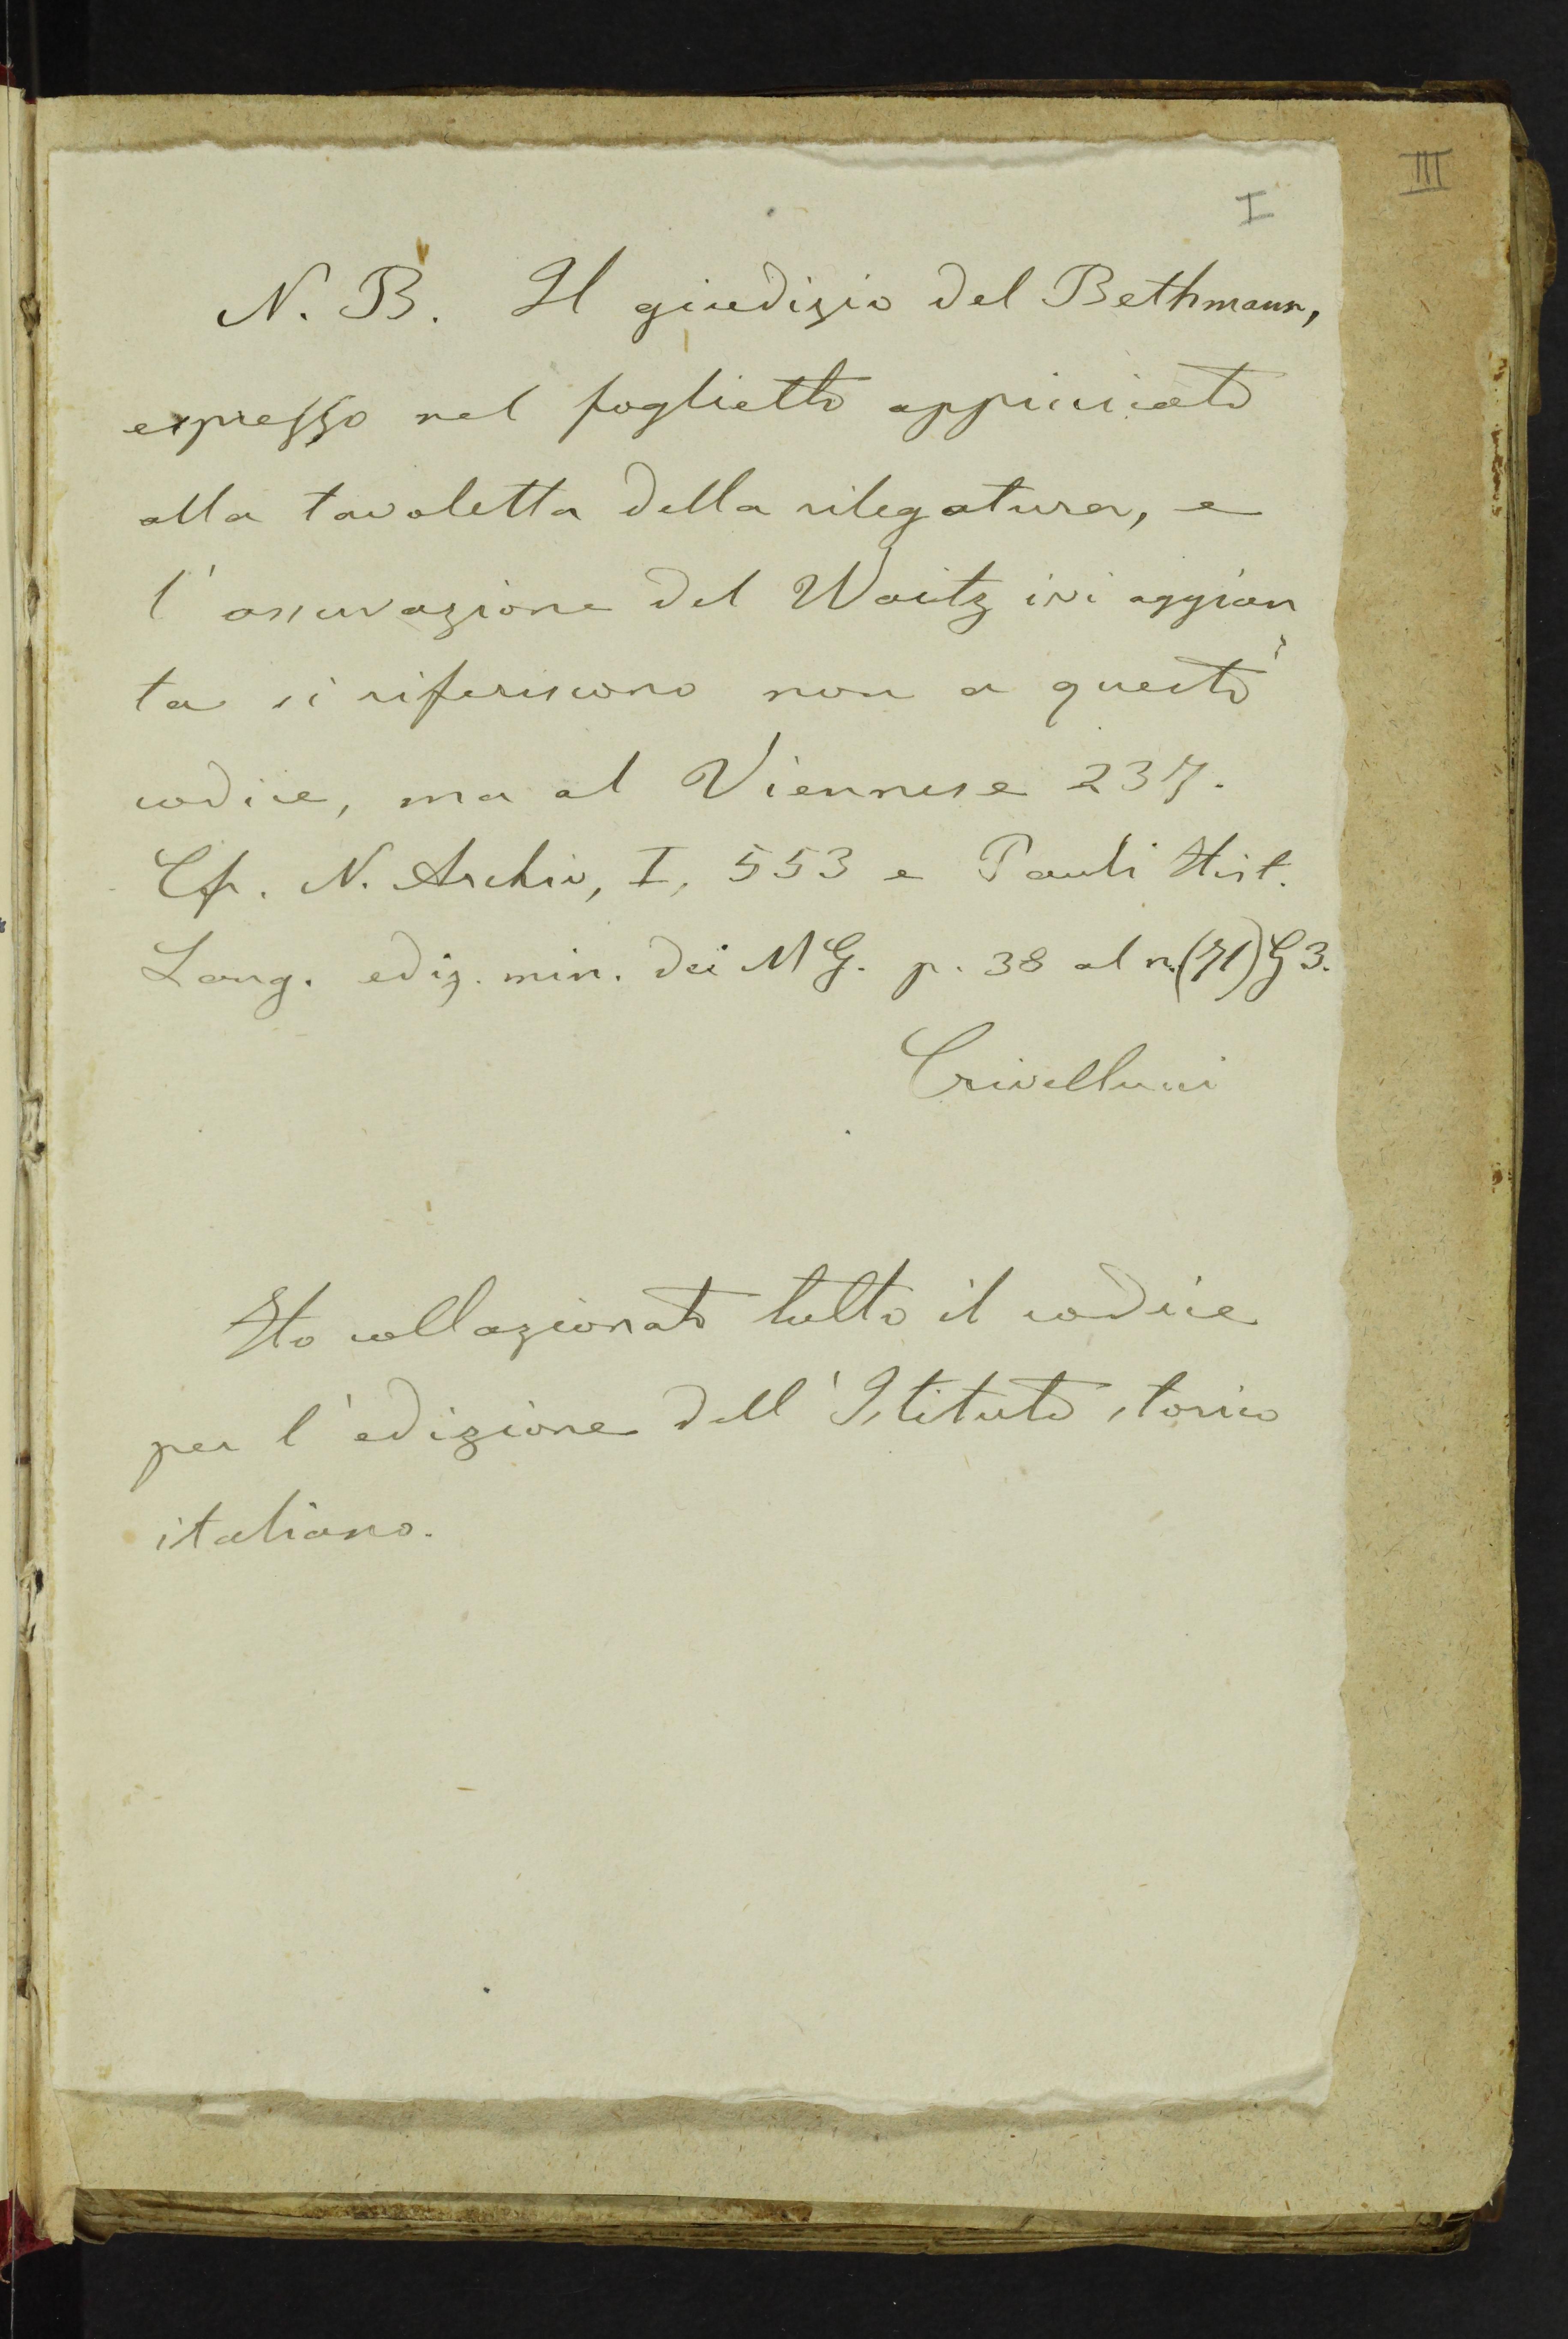 III
I
N. B. Il giudizio del Bethmann,
espresso nel foglietto appiccicato
alla tavoletta della rilegatura, e
l'osservazione del Waitz ivi aggiun
ta si riferiscono non a questo
codice, ma al Viennese 237.
Cfr. N. Archiv, I, 553 e Pauli Hist.
Lang. ediz. min. dei MG. p. 38 al n. (71) G 3.
Crivellucci
Ho collazionato tutto il codice
per l'edizione dell'Istituto storico
italiano.